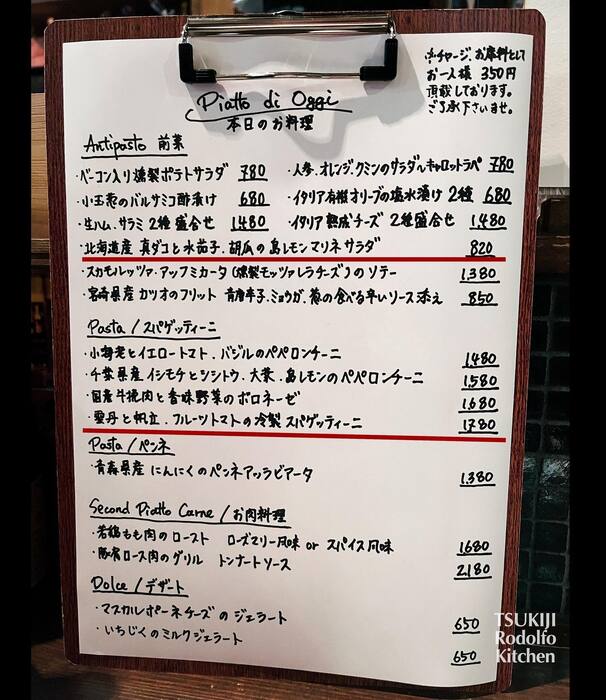 ※チャージ、お席料として
お一人様 350円
頂戴しております。
ご了承下さいませ。
Piatto di Oggi
本日のお料理
Antipasto 前菜
・ベーコン入り燻製ポテトサラダ 780
・人参、オレンジ、クミンのサラダ〜キャロットラペ 780
・小玉葱のバルサミコ酢漬け 680
・イタリア有機オリーブの塩水漬け 2種 680
・生ハム、サラミ 2種 盛合せ 1,480
・イタリア熟成チーズ 2種盛合せ 1,480
・北海道産 真ダコと水茄子、胡瓜の島レモンマリネサラダ 820
・スカモルッツァ・アッフミカータ(燻製モッツァレラチーズ)のソテー 1,380
・宮崎県産 カツオのフリット 青唐辛子、ミョウガ、葱の食べる辛いソース添え 850
Pasta / スパゲッティーニ
・小海老とイエロートマト、バジルのペペロンチーニ 1,480
・千葉県産イシモチとシシトウ、大葉、島レモンのペペロンチーニ 1,580
・国産牛挽肉と香味野菜のボロネーゼ 1,680
・雲丹と帆立、フルーツトマトの冷製スパゲッティーニ 1,780
Pasta / ペンネ
・青森県産 にんにくのペンネアッラビアータ 1,380
Second Piatto Carne / お肉料理
・若鶏もも肉のロースト ローズマリー風味 or スパイス風味 1,680
・豚肩ロース肉のグリル トンナートソース 2,180
Dolce / デザート
・マスカルポーネチーズのジェラート 650
・いちじくのミルクジェラート 650
TSUKIJI
Rodolfo
Kitchen